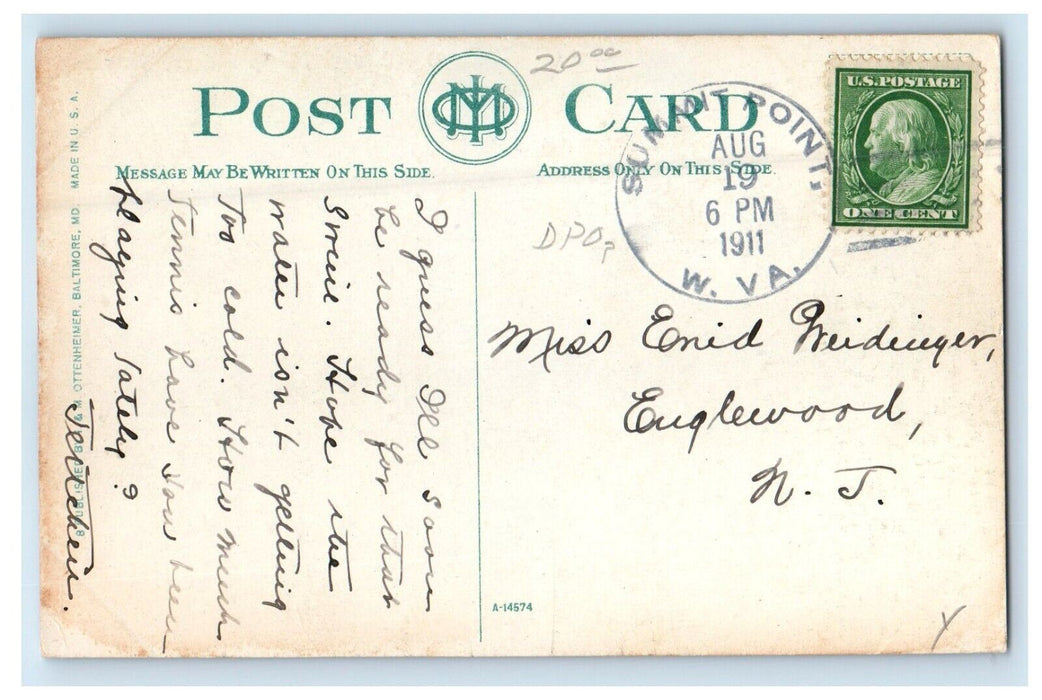 POST CARD
20 00
MESSAGE MAY BE WRITTEN ON THIS SIDE.
ADDRESS ONLY ON THIS SIDE.
SUMMIT POINT.
AUG
19
6 PM
1911
W. VA.
U.S. POSTAGE
ONE CENT
DPO
I guess I'll soon
be ready for that
Swim. Hope the
water isn't getting
too cold. How much
Tennis have you been
playing lately?
Miss Enid Weidinger,
Englewood,
N. J.
A-14574
PUBLISHED BY I & M OTTENHEIMER, BALTIMORE, MD. MADE IN U. S. A.